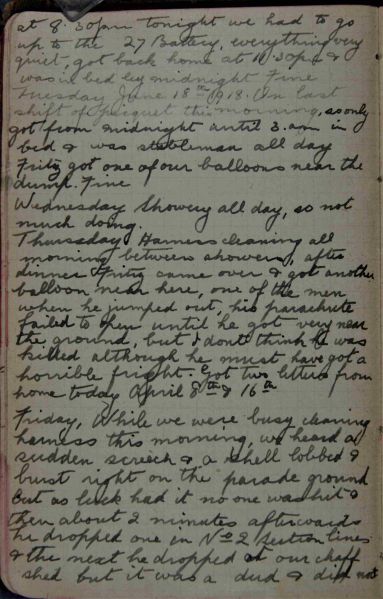 at 8.30pm tonight we had to go
up to the 27 Battery, everything very
quiet, got back home at 11.30pm &
was in bed by midnight Fine
Tuesday June 18th 1918. On last
shift of Picquet this morning, so only
got from midnight until 3.am in
bed & was stableman all day
Fritz got one of our balloons near the
dump. Fine
Wednesday Showery all day, so not
much doing.
Thursday Harness cleaning all
morning between showers, after
dinner Fritz came over & got another
balloon near here, one of the men
when he jumped out, his parachute
failed to open until he got very near
the ground, but I dont think he was
killed although he must have got a
horrible fright. Got two letters from
home today April 8th & 16th
Friday, While we were busy cleaning
harness this morning, we heard a
sudden screech & a shell lobbed &
burst right on the parade ground
but as luck had it no one was hit &
then about 2 minutes afterwards
he dropped one in No 2 section lines
& the next he dropped at our chaff
shed but it was a dud & did not